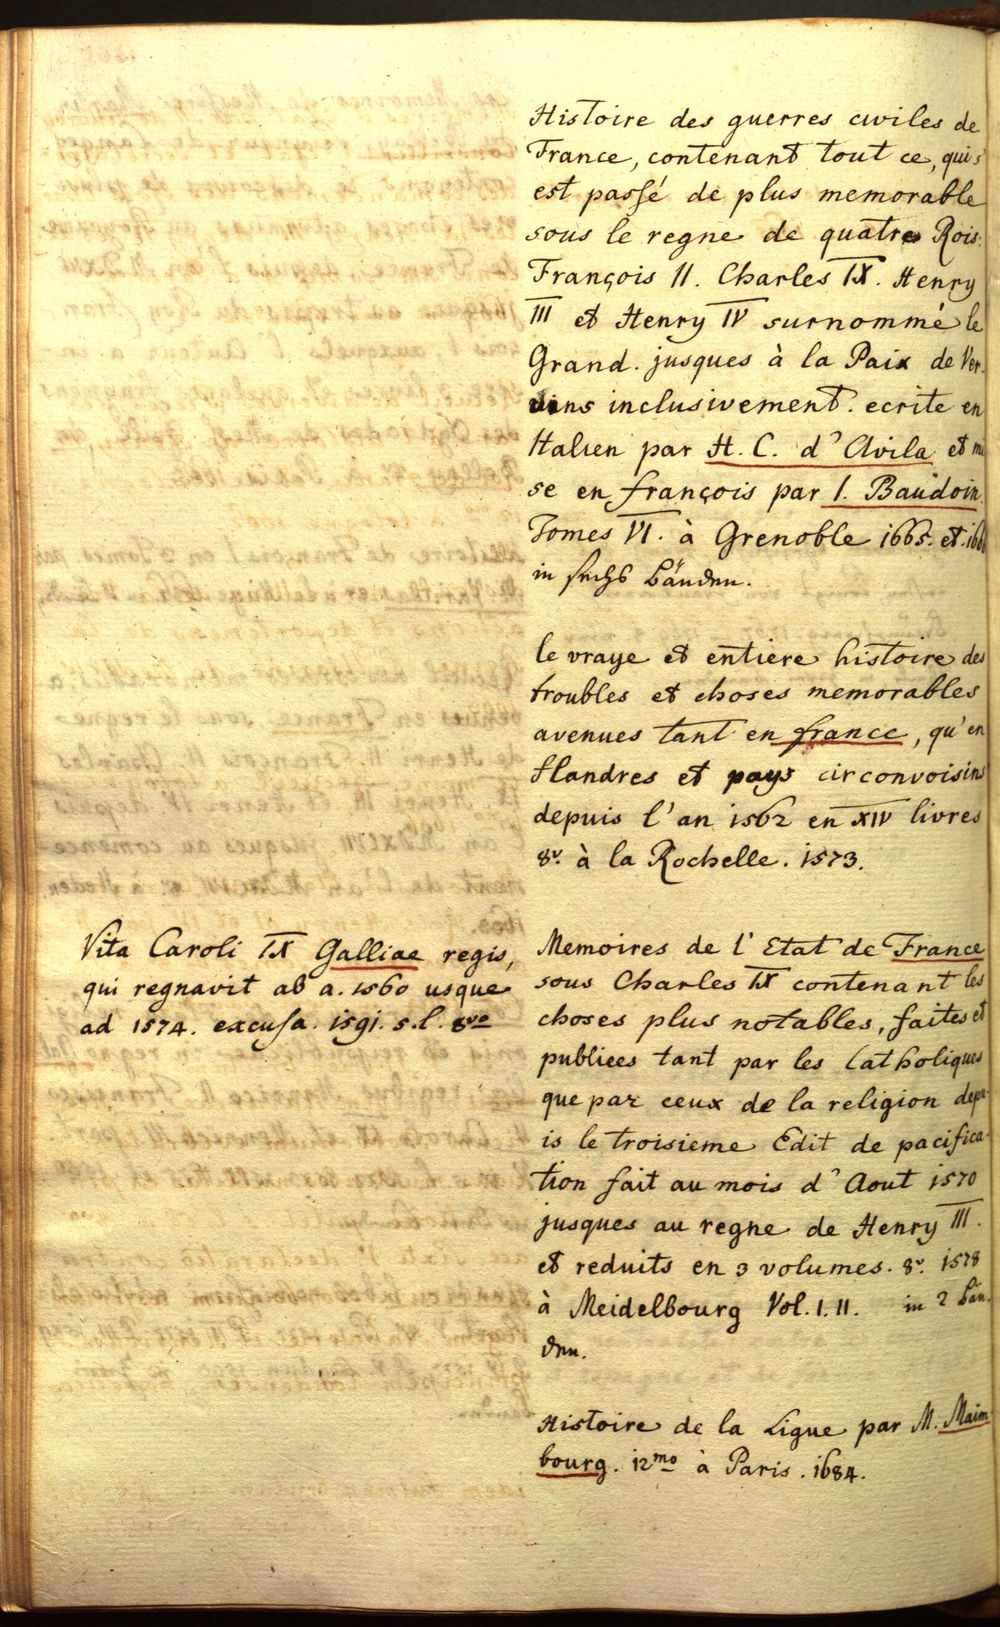 Histoire des guerres civiles de
France, contenant tout ce, qui s'
est passé de plus memorable
sous le regne de quatre Rois:
François II. Charles IX. Henry
III et Henry IV surnommé le
Grand. jusques à la Paix de Ver-
vins inclusivement. ecrite en
Italien par H. C. d'Avila et mi
se en françois par I. Baudoin.
Tomes VI. à Grenoble 1665. et
in sechs Bänden.
le vraye et entiere histoire des
troubles et choses memorables
avenues tant en france, qu'en
Flandres et pays circonvoisins
depuis l'an 1562 en XIV livres
8v. à la Rochelle. 1573.
Vita Caroli IX Galliae regis,
qui regnavit ab a. 1560 usque
ad 1574. excusa. 1591. s. l. 8vo
Memoires de l'Etat de France
sous Charles IX contenant les
choses plus notables, faites et
publiees tant par les Catholiques
que par ceux de la religion depu-
is le troisieme Edit de pacifica-
tion fait au mois d'Aout 1570
jusques au regne de Henry III.
et reduits en 3 volumes. 8v. 1578
à Meidelbourg Vol. I. II. in 2 Bän-
den.
Histoire de la Ligue par M. Maim
bourg. 12mo à Paris. 1684.